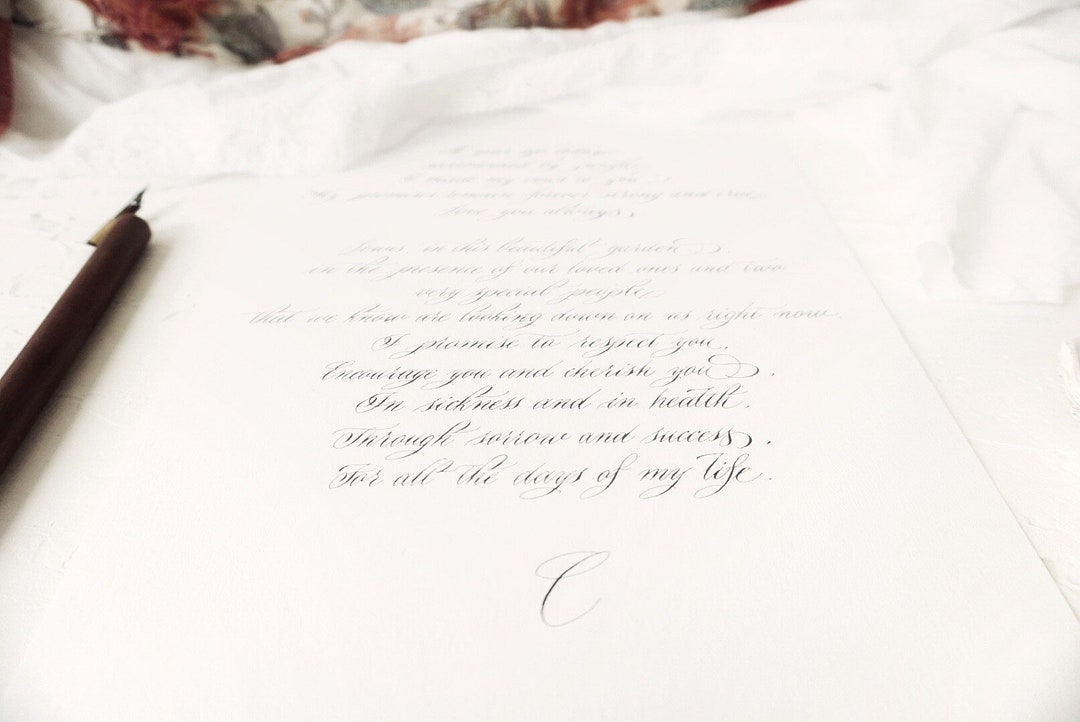 A year ago today
surrounded by
I made my vows to you
My promise remain forever strong and true
Love you always,
in this beautiful garden
in the presence of our loved ones and two
very special people
that we know are looking down on us right now.
I promise to respect you.
Encourage you and cherish you.
In sickness and in health.
Through sorrow and success.
For all the days of my life.
C